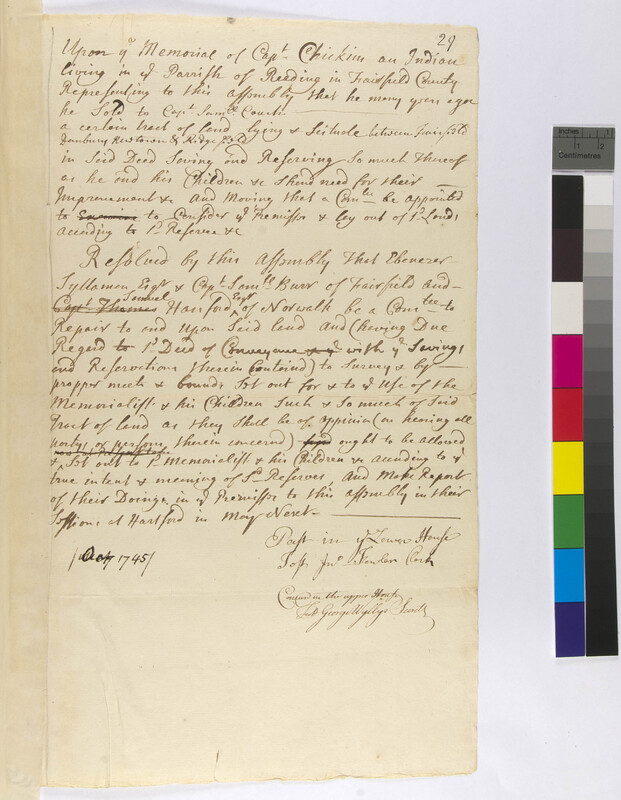 29
Upon ye Memorial of Capt Chickins an Indian
living in ye Parrish of Reading in Fairfield County
Representing to this assembly that he many years agoe
he Sold to Capt Samll Couch
a certain tract of land lying & Scituate between Fairfield
Danbury Newtown & Ridgefield
in Said Deed Saving and Reserving So much thereof
as he and his Children &c Should need for their
Improvement &c and Moving that a Comtee be appointed
to to Consider ye Premisses & lay out sd Land
according to sd Reserves &c
Resolved by this assembly that Ebenezer
Syllaman Esqr & Capt Samll Burr of Fairfield and
Capt Thomas Samuel Hanford Esqr of Norwalk be a Comtee to
Repair to and upon Said land and (having Due
Regard to sd Deed of Conveyance & ye with ye Savings
and Reservations therein Contained) to Survey & by
propper meets & bounds Set out for & to ye Use of the
Memorialist & his Children Such & So much of Said
tract of land as they Shall be of oppinion (on hearing all
partys or persons therein concerned) ought to be allowed
& Set out to sd Memorialist & his Children &c according to ye
true intent & meaning of sd Reserves and Make Report
of their Doings in ye Premisses to this assembly in their
Sessions at Hartford in May Next
Past in ye Lower House
Test Jno Fowler Clerk
/ Octr 1745/
Concurd in the upper House
Test George Wyllys Secrety